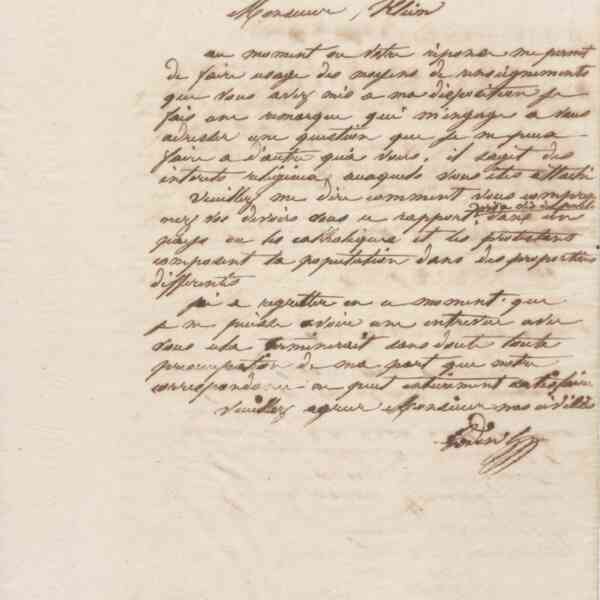 Monsieur Klein
au moment ou votre reponse me permet
de faire usage des moyens de renseignements
que vous avez mis a ma disposition je
fais une remarque qui m'engage a vous
adresser une question que je ne puis
faire a d'autre qu'a vous. il sagit des
interets religieux auxquels vous etes attaché
Veuillez me dire comment vous compre
nez vos devoirs sous ce rapport dans un
pays ou les catholiques et les protestans
composent la population dans des proportions
differentes
j'ai a regretter en ce moment que
je ne puisse avoir une entrevue avec
vous cela terminerait sans doute toute
preocupation de ma part que notre
correspondance ne peut entierement satisfaire
Veuillez agreer Monsieur mes civilités
Godin